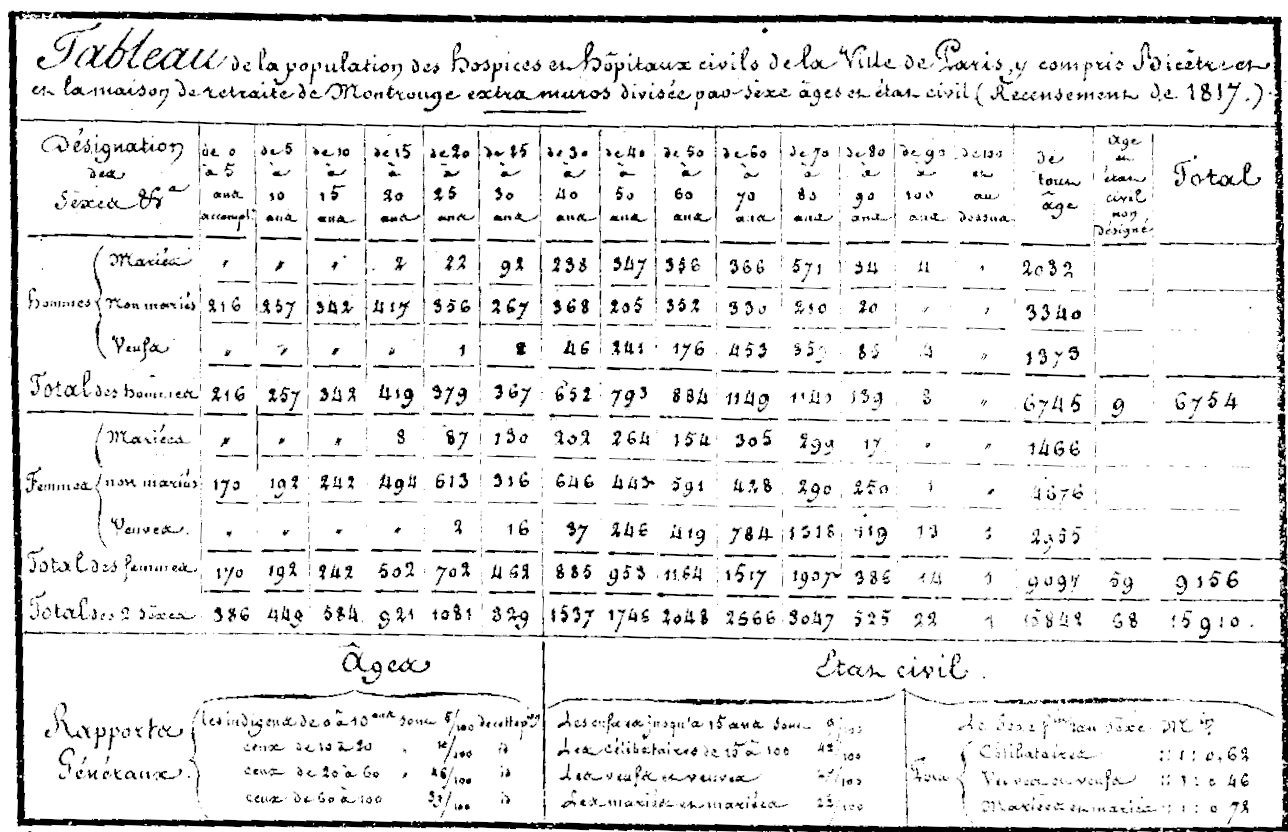 Tableau de la population des hospices et hôpitaux civils de la Ville de Paris, y compris Bicêtre et
et la maison de retraite de Montrouge extra muros divisée par sèxe âges et état civil (Recensement de 1817.)
Désignation des Sèxes &ª | de 0 à 5 ans accompl. | de 5 à 10 ans | de 10 à 15 ans | de 15 à 20 ans | de 20 à 25 ans | de 25 à 30 ans | de 30 à 40 ans | de 40 à 50 ans | de 50 à 60 ans | de 60 à 70 ans | de 70 à 80 ans | de 80 à 90 ans | de 90 à 100 ans | de 100 et au dessus | de tous âge | âge et état civil non désigné | Total
Hommes Mariés " " " 2 22 92 238 347 356 366 571 34 4 " 2032
non mariés 216 257 342 417 356 267 368 205 352 330 210 20 " " 3340
Veufs " " " " 1 8 46 241 176 453 85 4 " 1373
Total des hommes 216 257 342 419 379 367 652 793 884 1149 1140 139 8 " 6745 9 6754
Femmes Mariées " " " 8 87 130 202 264 154 305 299 17 " " 1466
non mariés 170 192 242 494 613 316 646 443 591 428 290 250 1 " 4676
Veuves " " " " 2 16 37 246 419 784 1318 119 13 1 2955
Total des femmes 170 192 242 502 702 462 885 953 1164 1517 1907 386 14 1 9097 59 9156
Total des 2 sèxes 386 449 584 921 1081 829 1537 1746 2048 2666 3047 525 22 1 15842 68 15910.
Âges
État civil.
Rapports Généraux.
Les indigens de 0 à 10 ans sont 5/100 de cette popon
ceux de 10 à 20 " 10/100 id
ceux de 20 à 60 " 46/100 id
ceux de 60 à 100 39/100 id
Les enfans jusqu'à 15 ans sont 9/100
Les célibataires de 15 à 100 42/100
Les veufs et veuves 27/100
Les mariés et mariées 22/100
Le sèxe fin au sèxe Min
Pour
Célibataires :: 1 : 0,62
Veuves et veufs :: 1 : 0 46
Mariées et mariés :: 1 : 0 72